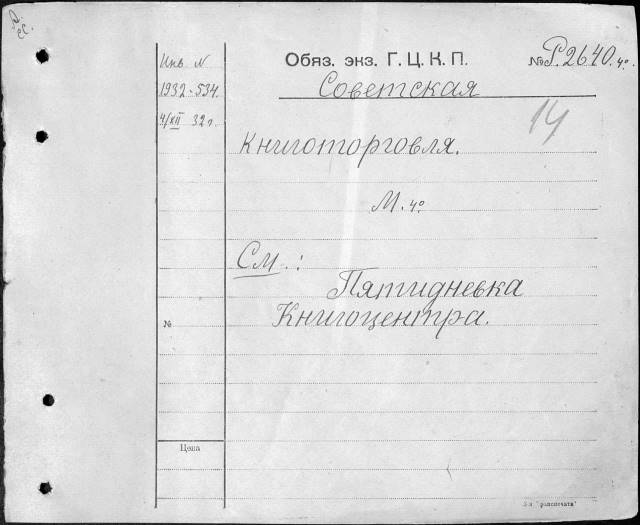 Инв. N
1932-534.
4/XII 32 г.
Обяз. экз. Г. Ц. К. П.
№ Р.2640.4º.
Советская
14
Книготорговля.
М. 4º
См.:
Пятидневка
Книгоцентра.
№
Цена